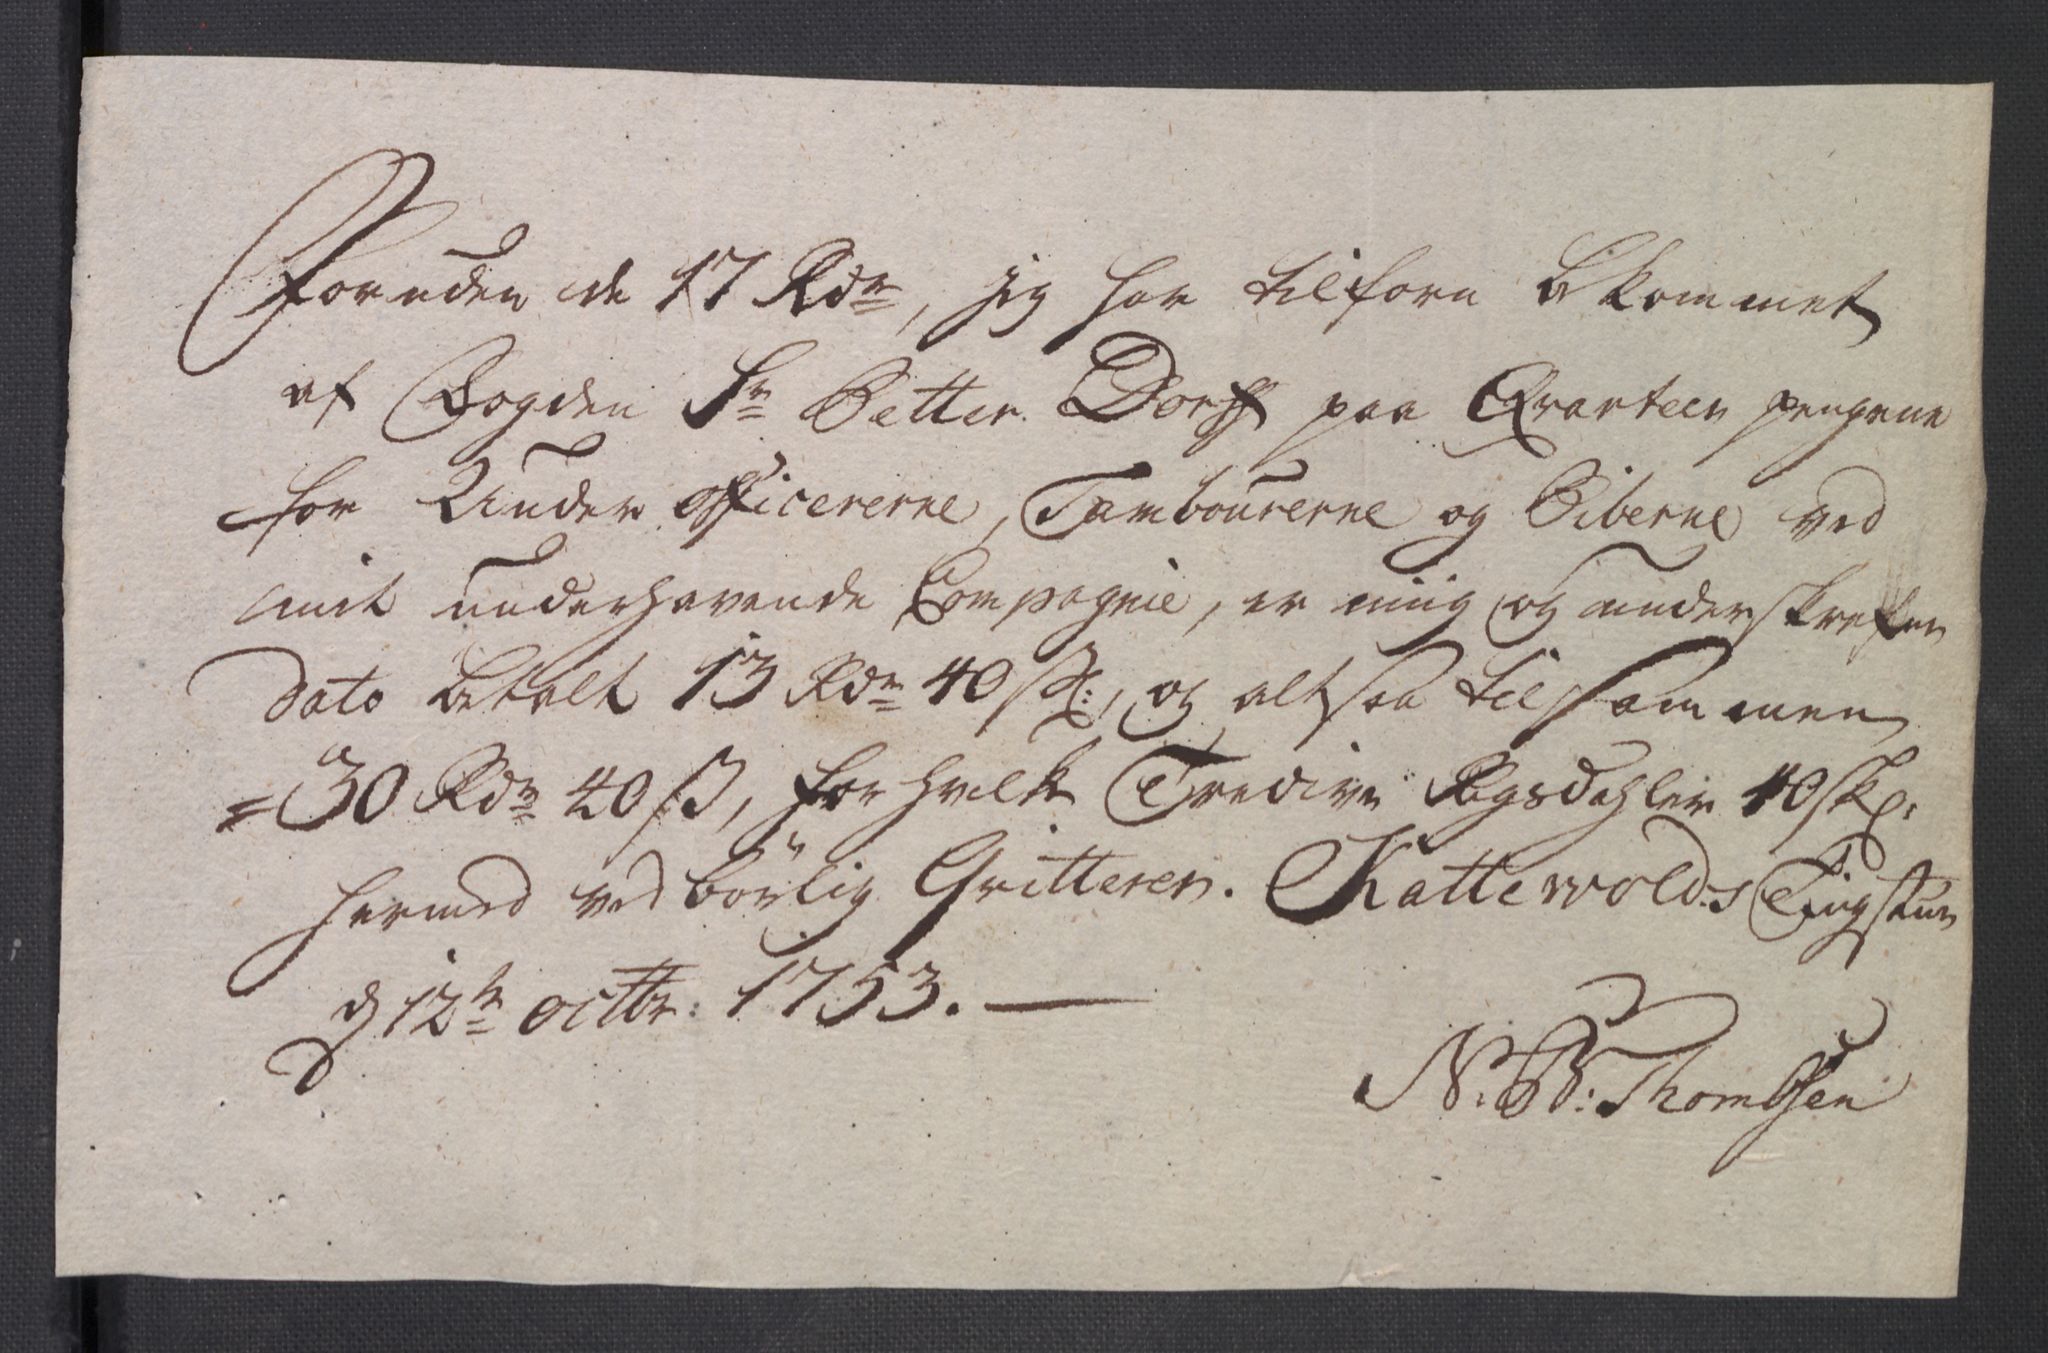 Foruden de 17 Rdr, jeg har tilforn bekommet
af Fogden Sr Petter Dorff paa Qvarteer pengene
for Under officererne, Tambourerne og Piberne ved
mit underhavende Compagnie, er mig og underskrefne
dato betalt 13 Rdr 40 sk:, og altsaa tilsammen
= 30 Rdr 40 ß, for hvilke Tredive Rigsdahler 40 sk:
hermed ved börlig Qvitteres. Kattewolds Tingstue
d 12te octbr: 1753.
N. W: Thombsen